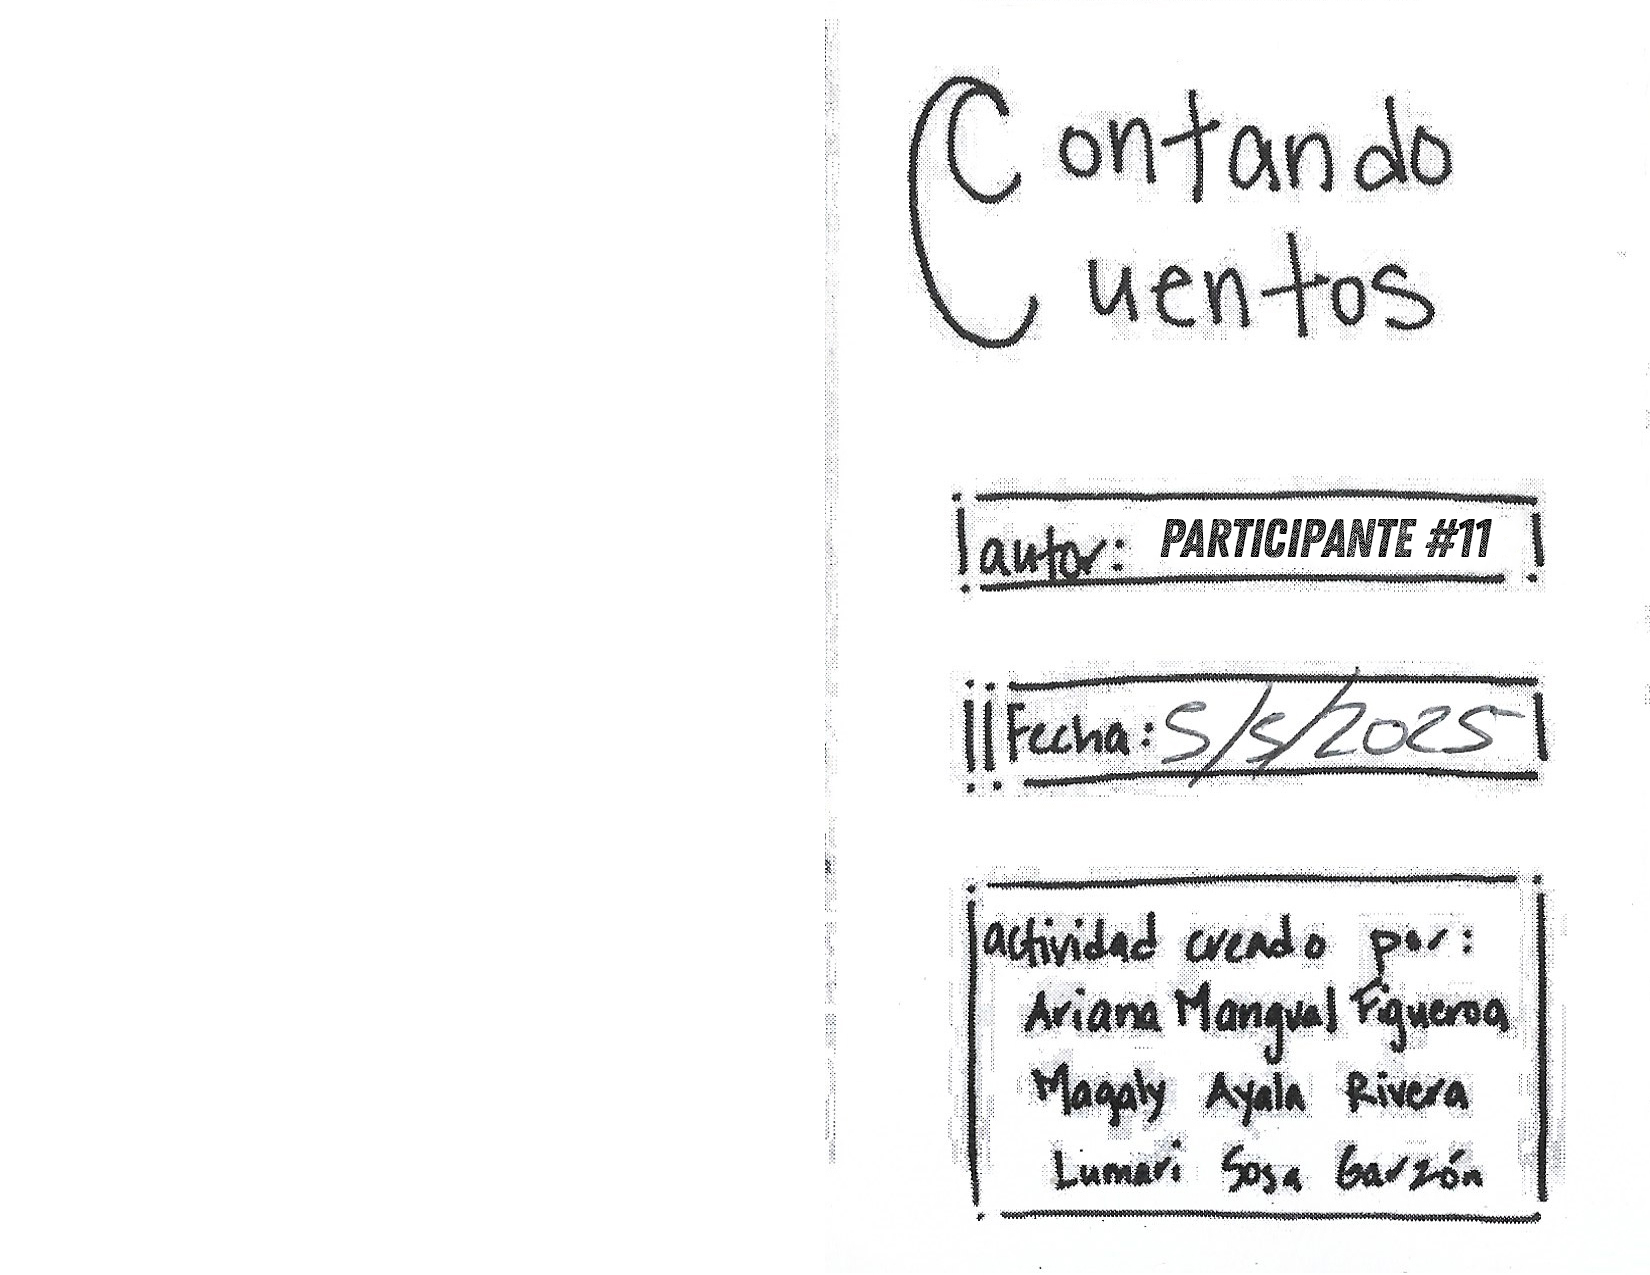 Contando
Cuentos
autor: PARTICIPANTE #11
Fecha: 5/5/2025
actividad creado por:
Ariana Mangual Figueroa
Magaly Ayala Rivera
Lumari Sosa Garzón